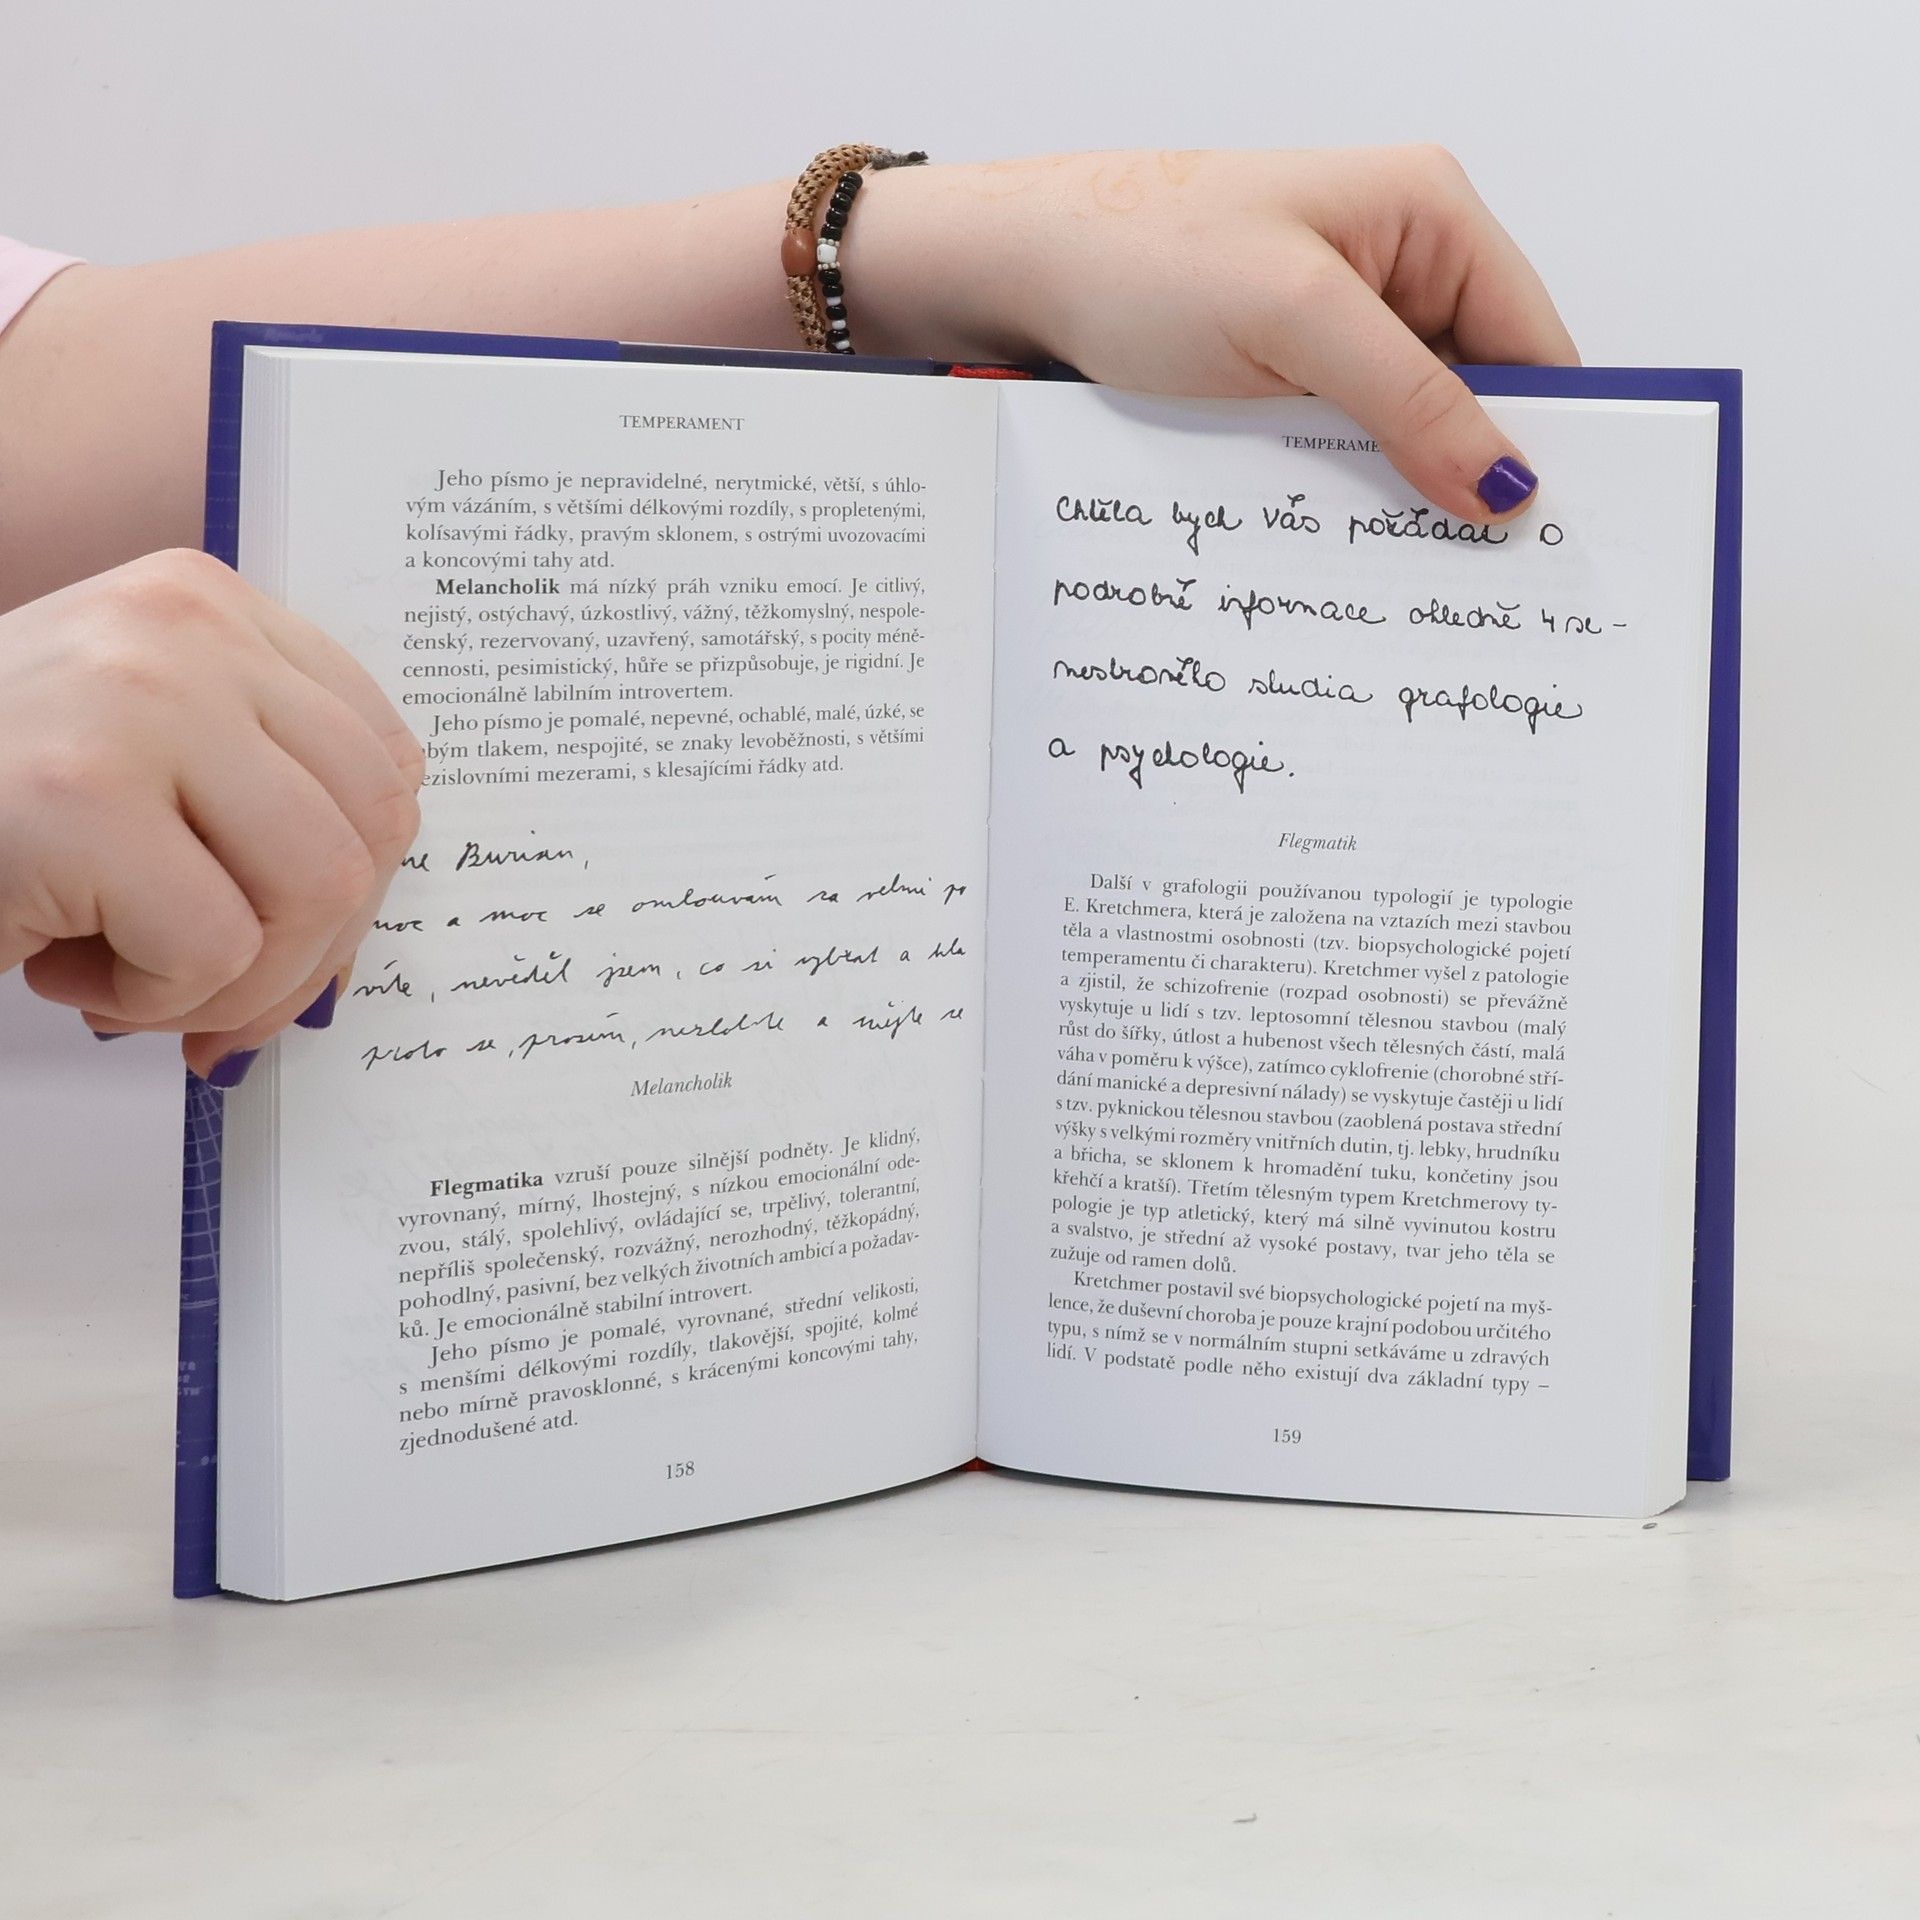 TEMPERAMENT
Jeho písmo je nepravidelné, nerytmické, větší, s úhlo-
vým vázáním, s většími délkovými rozdíly, s propletenými,
kolísavými řádky, pravým sklonem, s ostrými uvozovacími
a koncovými tahy atd.
Melancholik má nízký práh vzniku emocí. Je citlivý,
nejistý, ostýchavý, úzkostlivý, vážný, těžkomyslný, nespole-
čenský, rezervovaný, uzavřený, samotářský, s pocity méně-
cennosti, pesimistický, hůře se přizpůsobuje, je rigidní. Je
emocionálně labilním introvertem.
Jeho písmo je pomalé, nepevné, ochablé, malé, úzké, se
bým tlakem, nespojité, se znaky levoběžnosti, s většími
ezislovními mezerami, s klesajícími řádky atd.
ne Burian,
moc a moc se omlouvám za velmi po
víte, nevěděl jsem, co si vybrat a hla
proto se, prosím, nezlobte a mějte se
Melancholik
Flegmatika vzruší pouze silnější podněty. Je klidný,
vyrovnaný, mírný, lhostejný, s nízkou emocionální ode-
zvou, stálý, spolehlivý, ovládající se, trpělivý, tolerantní,
nepříliš společenský, rozvážný, nerozhodný, těžkopádný,
pohodlný, pasivní, bez velkých životních ambicí a požadav-
ků. Je emocionálně stabilní introvert.
Jeho písmo je pomalé, vyrovnané, střední velikosti,
s menšími délkovými rozdíly, tlakovější, spojité, kolmé
nebo mírně pravosklonné, s krácenými koncovými tahy,
zjednodušené atd.
158
TEMPERAME
Chtěla bych Vás požádat o
podrobné informace ohledně 4 se-
mestrového studia grafologie
a psychologie.
Flegmatik
Další v grafologii používanou typologií je typologie
E. Kretchmera, která je založena na vztazích mezi stavbou
těla a vlastnostmi osobnosti (tzv. biopsychologické pojetí
temperamentu či charakteru). Kretchmer vyšel z patologie
a zjistil, že schizofrenie (rozpad osobnosti) se převážně
vyskytuje u lidí s tzv. leptosomní tělesnou stavbou (malý
růst do šířky, útlost a hubenost všech tělesných částí, malá
váha v poměru k výšce), zatímco cyklofrenie (chorobné stří-
dání manické a depresivní nálady) se vyskytuje častěji u lidí
s tzv. pyknickou tělesnou stavbou (zaoblená postava střední
výšky s velkými rozměry vnitřních dutin, tj. lebky, hrudníku
a břicha, se sklonem k hromadění tuku, končetiny jsou
křehčí a kratší). Třetím tělesným typem Kretchmerovy ty-
pologie je typ atletický, který má silně vyvinutou kostru
a svalstvo, je střední až vysoké postavy, tvar jeho těla se
zužuje od ramen dolů.
Kretchmer postavil své biopsychologické pojetí na myš-
lence, že duševní choroba je pouze krajní podobou určitého
typu, s nímž se v normálním stupni setkáváme u zdravých
lidí. V podstatě podle něho existují dva základní typy –
159